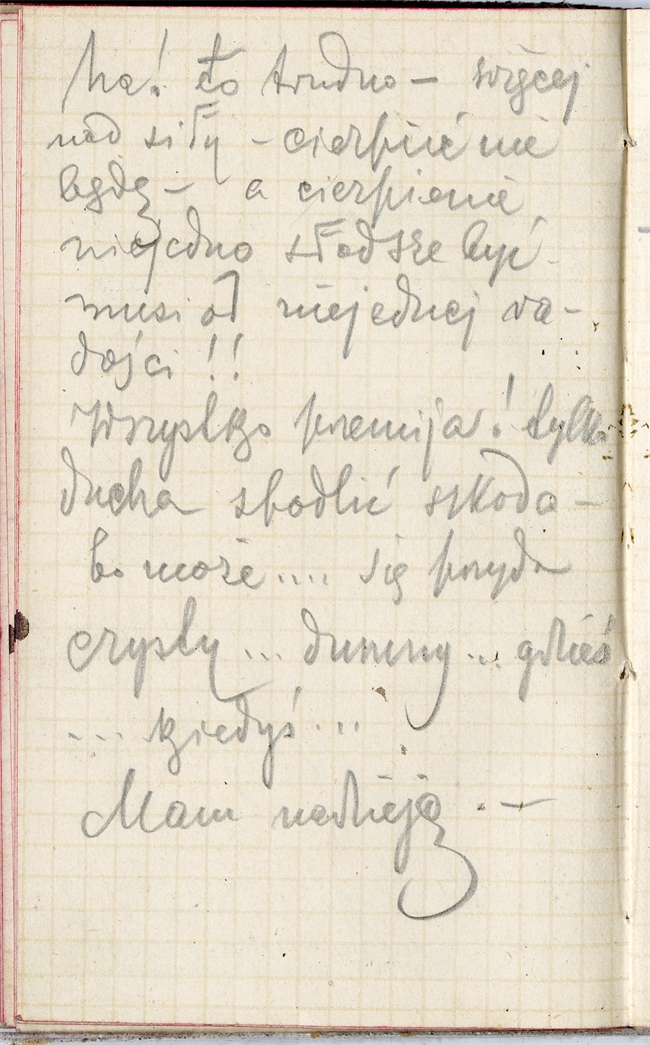 ha! to trudno — więcej
nad siły – cierpieć nie
będę — a cierpienie
niejedno słodsze być
musi od niejednej ra-
dości!!
Wszystko przemija! tylko
ducha spodlić szkoda —
bo może .... się przyda
czysty ... dumny ... gdzieś
... kiedyś ...
Mam nadzieję. —